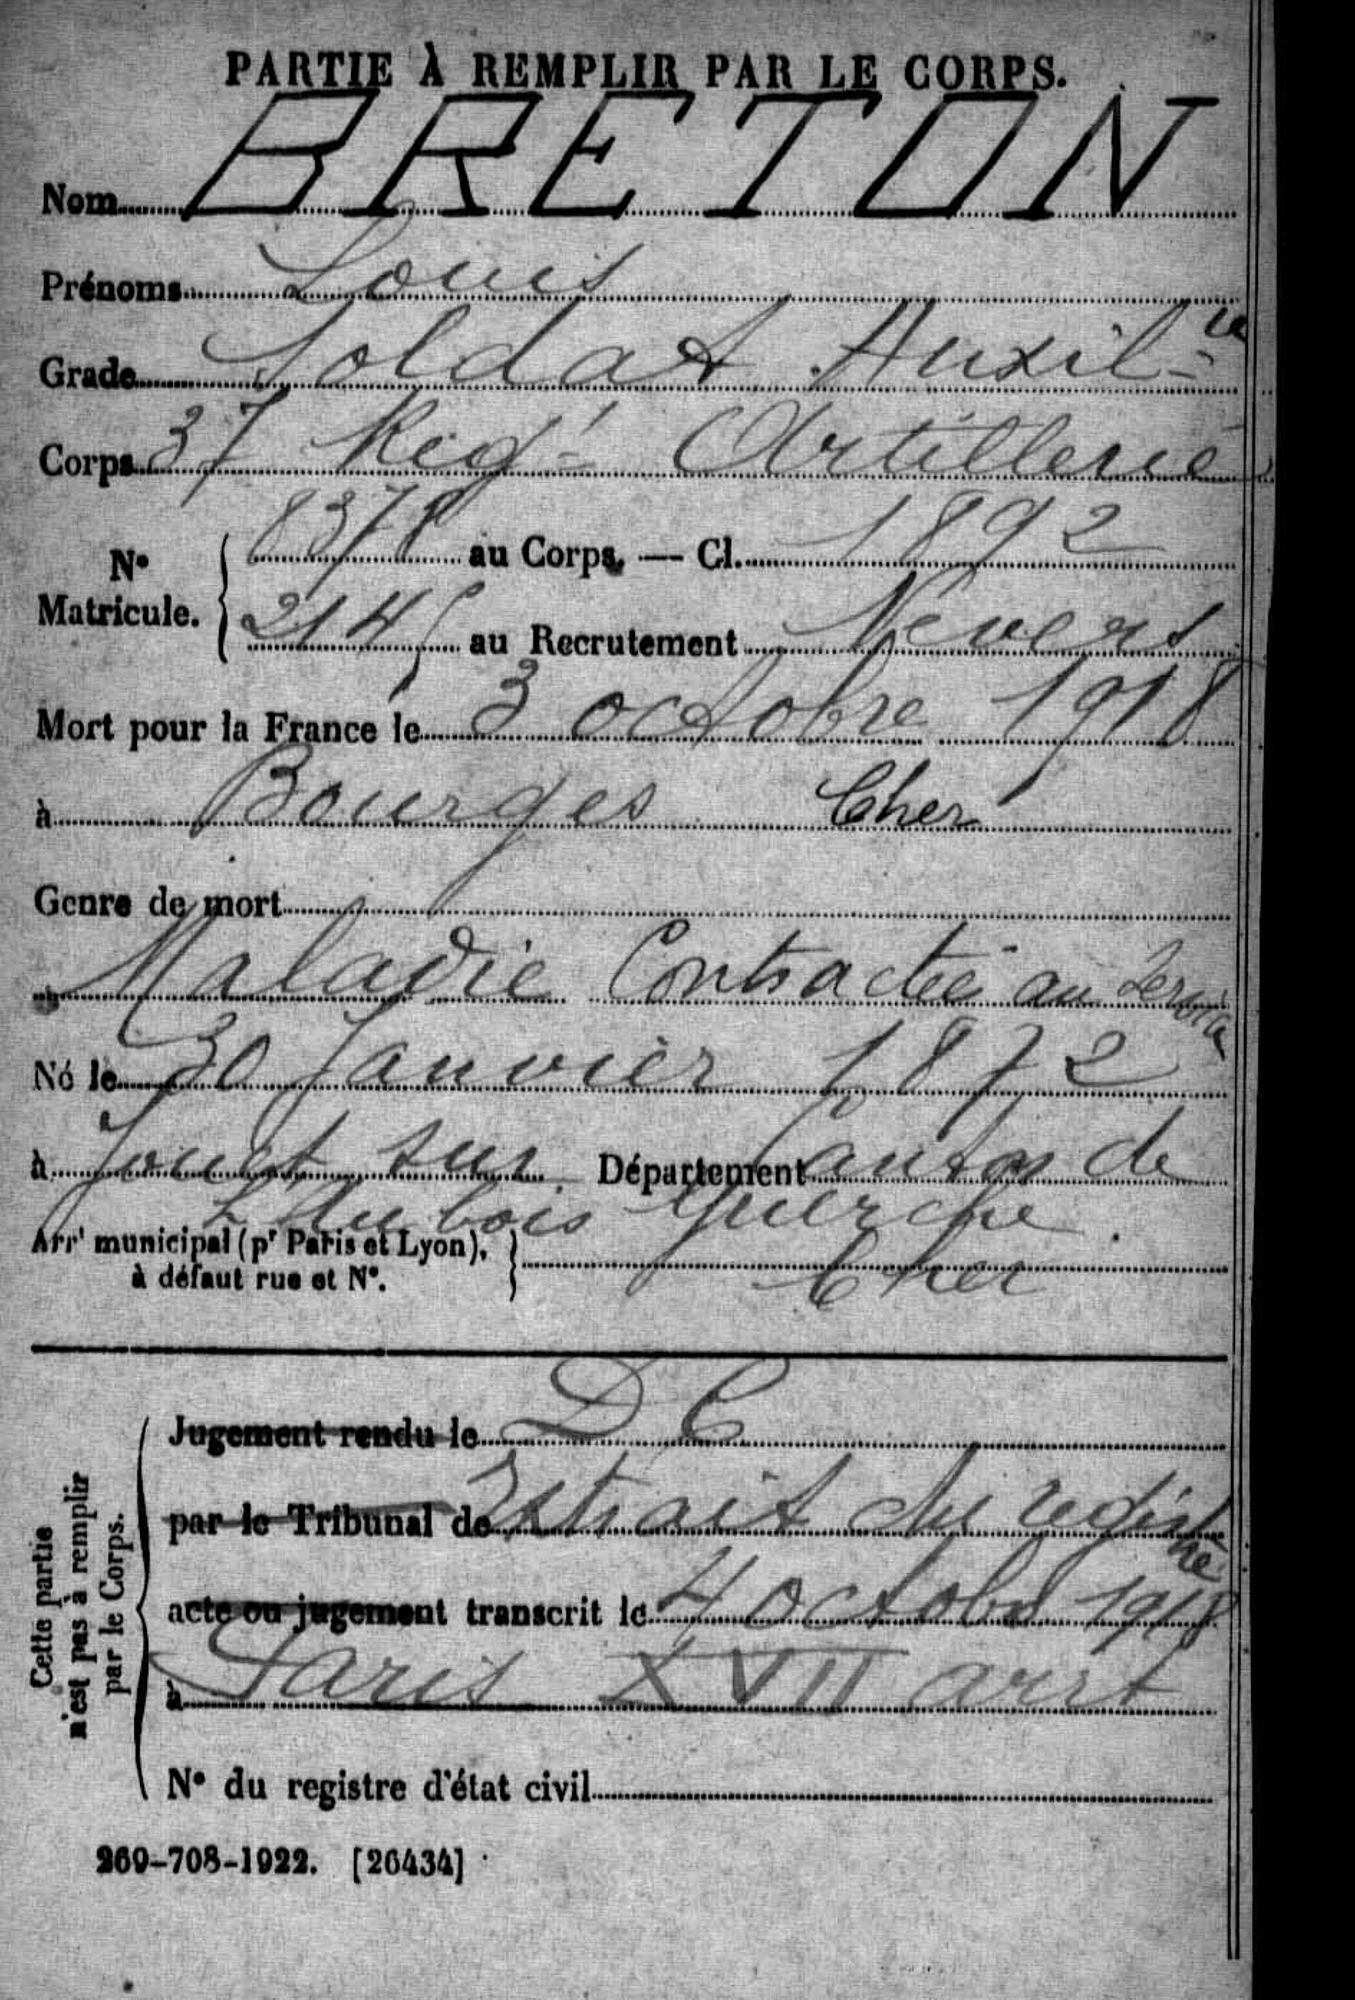 PARTIE À REMPLIR PAR LE CORPS.
Nom BRETON
Prénoms Louis
Grade Soldat Auxil-re
Corps 37 Regt Artillerie
N° Matricule. { 8378 au Corps. — Cl. 1892
2145 au Recrutement Nevers
Mort pour la France le 3 octobre 1918
à Bourges Cher
Genre de mort
Maladie Contractée au Service
Né le 30 Janvier 1872
à Jouet sur Département Canton de
L'Aubois Guerche
Arrt municipal (pr Paris et Lyon), à défaut rue et N°. } Cher
Cette partie n'est pas à remplir par le Corps.
Jugement rendu le D C
par le Tribunal de Extrait du registre
acte ou jugement transcrit le 4 octobre 1918
à Paris XVII arrt
N° du registre d'état civil
269-708-1922. [26434]